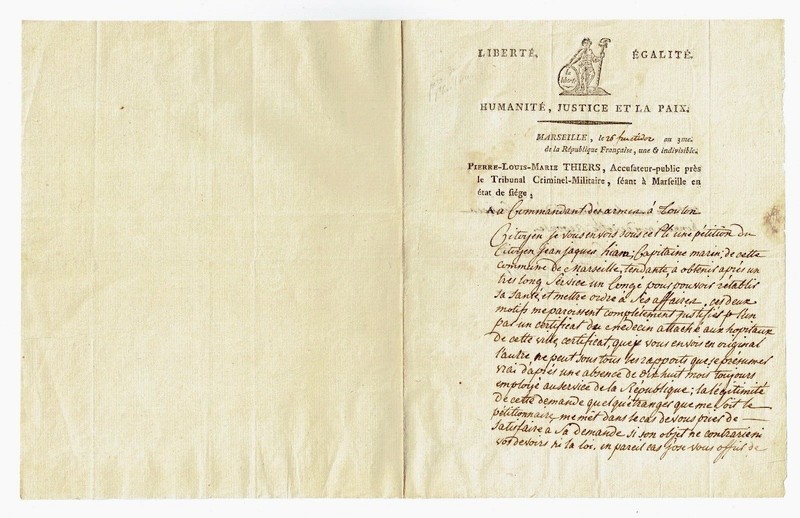 LIBERTÉ, ÉGALITÉ.
la liberté
HUMANITÉ, JUSTICE ET LA PAIX.
MARSEILLE, le 26 fructidor an 3me.
de la République Française, une & indivisible.
PIERRE-LOUIS-MARIE THIERS, Accusateur-public près
le Tribunal Criminel-Militaire, séant à Marseille en
état de siége;
Commandant des armes à Toulon
Citoyen je vous envois sous ce pli une pétition du
Citoyen jean jaques Capitaine marin, de cette
commune de Marseille, tendante, a obtenir après un
tres long Service un Congé pour pouvoir rétablir
sa Santé, et mettre ordre à Ses affaires, ces deux
motifs me paroissent complètement justifiés, l'un
par un certificat du médecin attaché aux hopitaux
de cette ville, certificat, que je vous envois en original
l'autre ne peut sous tous les rapports que se présumer
vrai d'après une absence de dix huit mois toujours
employé au service de la République; la légitimité
de cette demande quelqu'étranger que me soit le
pétitionnaire, me met dans le cas de vous prier de
Satisfaire a Sa demande si son objet ne contrarie ni
vos devoirs ni la loi, en pareil cas j'ose vous offrir de